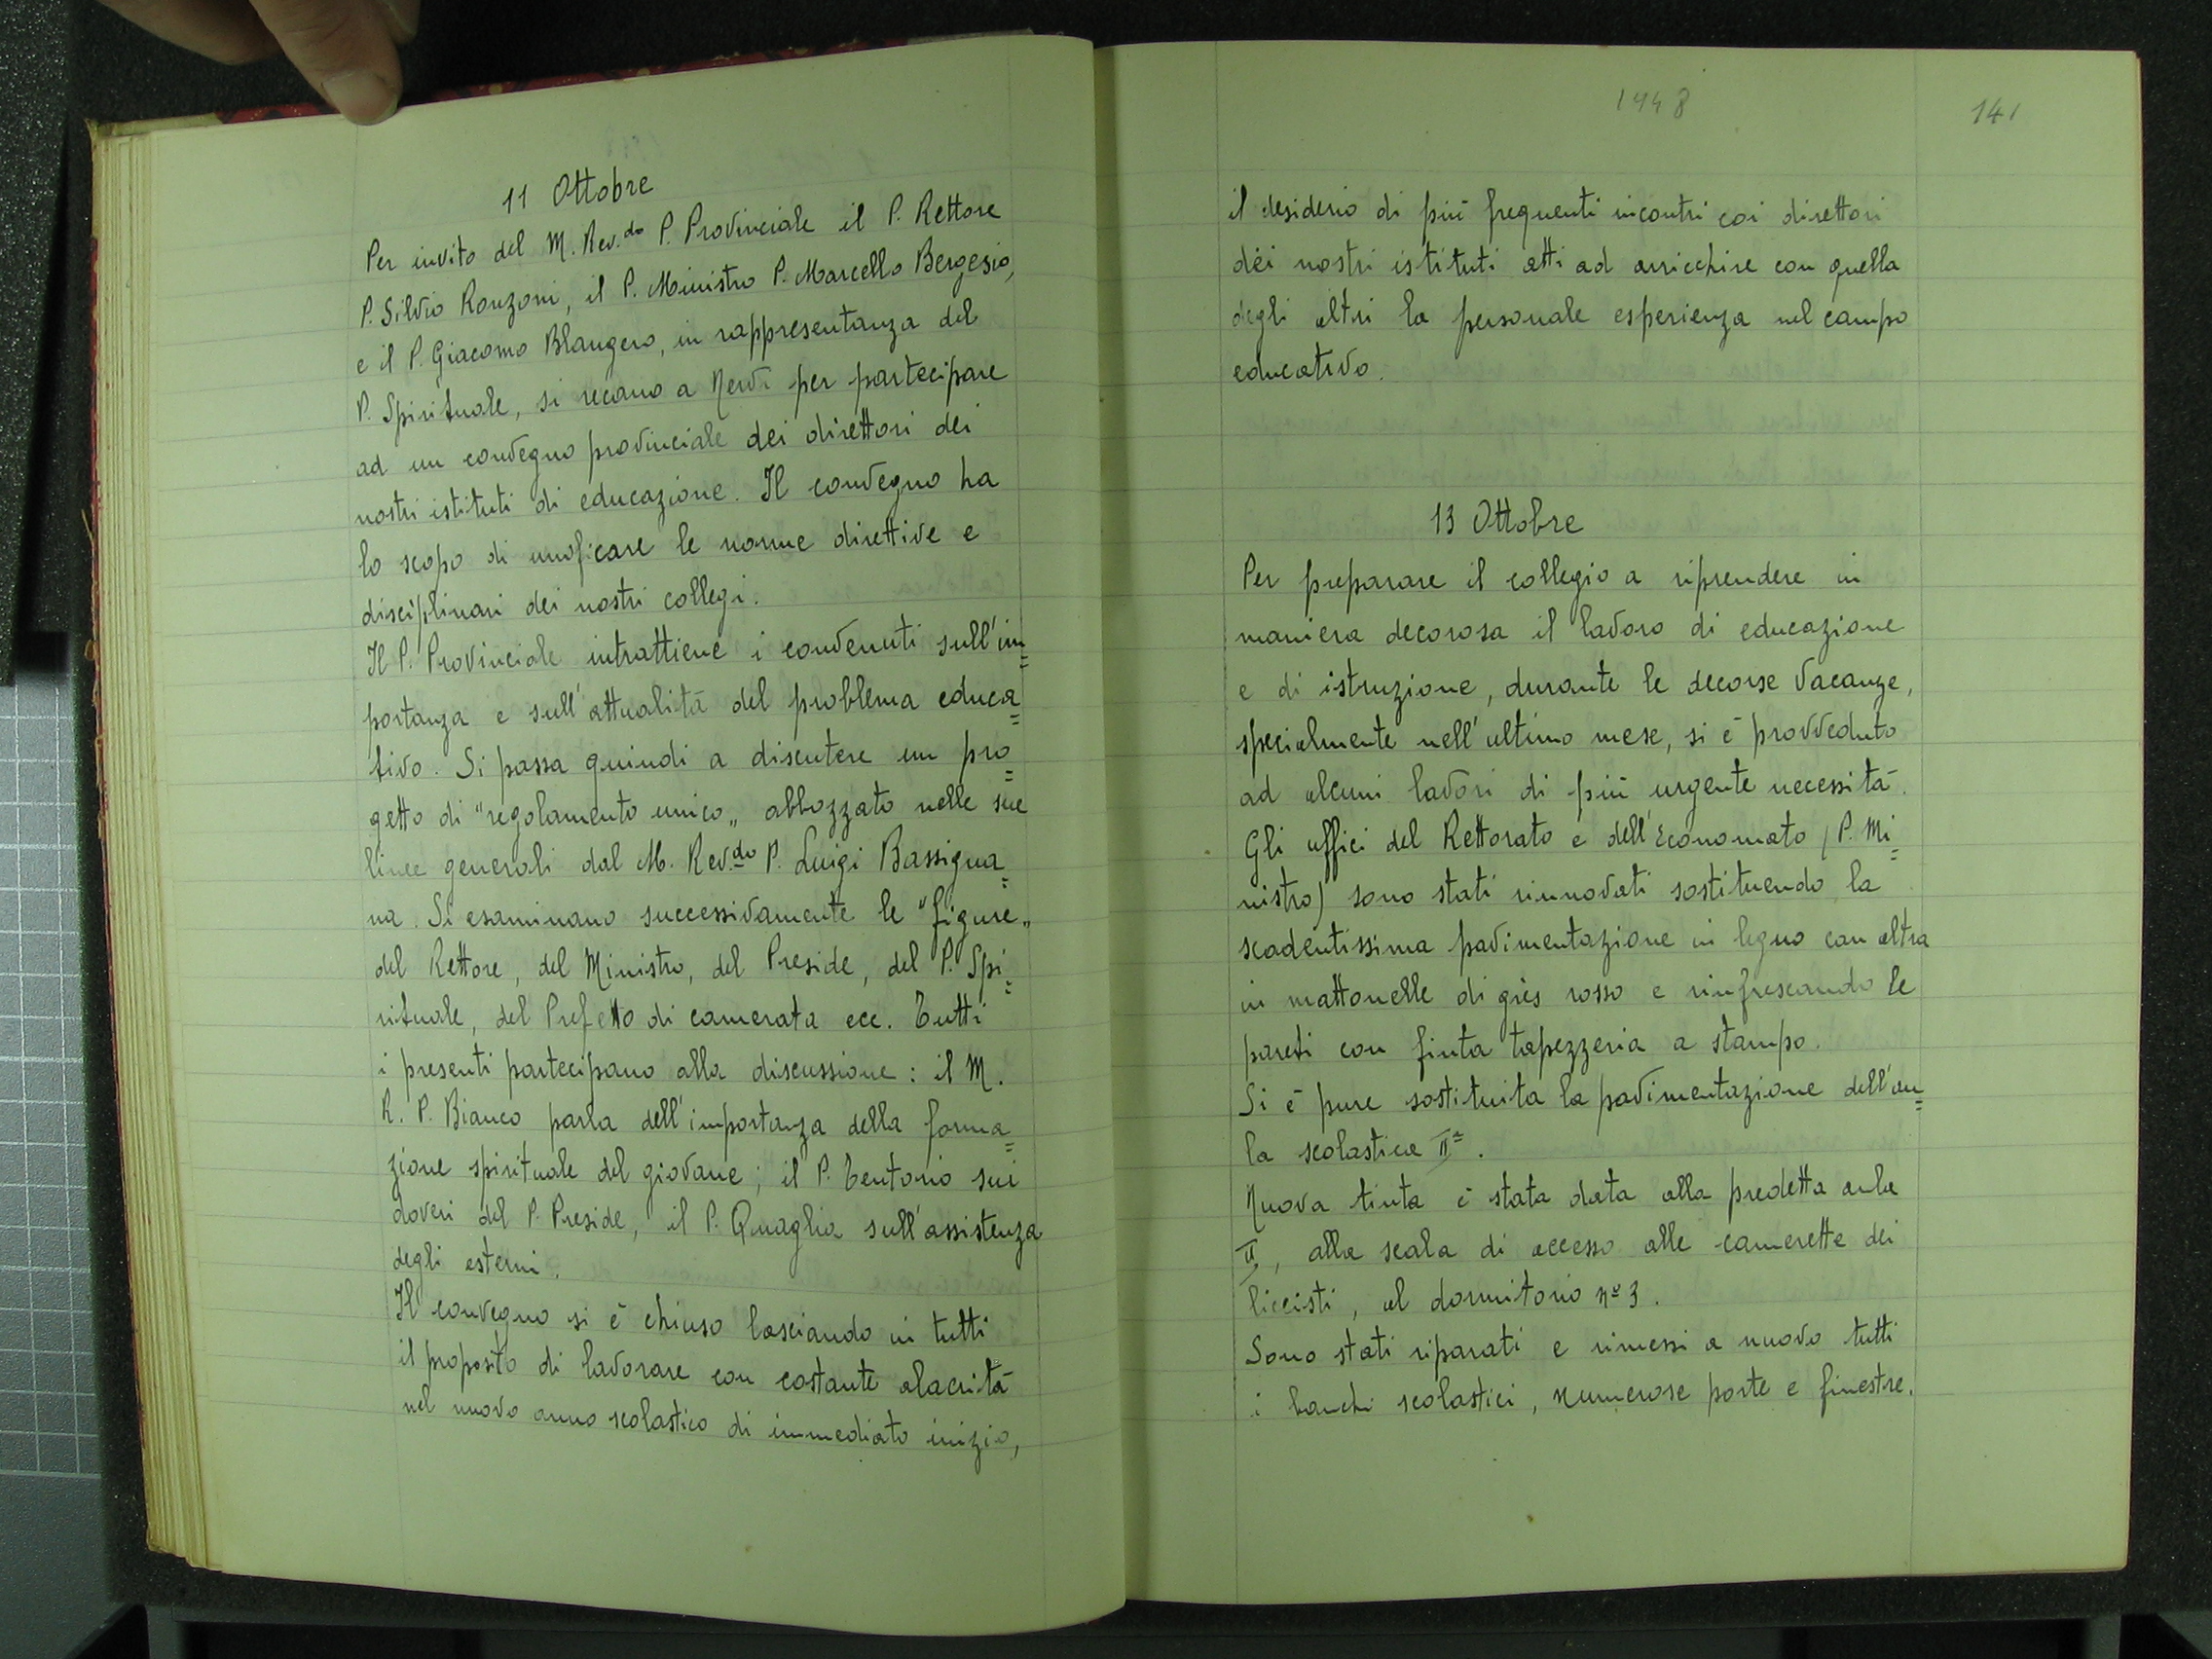 11 Ottobre
Per invito del M. Rev.do P. Provinciale il P. Rettore
P. Silvio Ronzoni, il P. Ministro P. Marcello Bergesio,
e il P. Giacomo Blangero, in rappresentanza del
P. Spirituale, si recano a Nervi per partecipare
ad un convegno provinciale dei direttori dei
nostri istituti di educazione. Il convegno ha
lo scopo di unificare le norme direttive e
disciplinari dei nostri collegi.
Il P. Provinciale intrattiene i convenuti sull'im=
portanza e sull'attualità del problema educa=
tivo. Si passa quindi a discutere un pro=
getto di "regolamento unico„ abbozzato nelle sue
linee generali dal M. Rev.do P. Luigi Bassigna=
na. Si esaminano successivamente le "figure„
del Rettore, del Ministro, del Preside, del P. Spi=
rituale, del Prefetto di camerata ecc. Tutti
i presenti partecipano alla discussione: il M.
R. P. Bianco parla dell'importanza della forma=
zione spirituale del giovane; il P. Tentorio sui
doveri del P. Preside, il P. Quaglia sull'assistenza
degli esterni.
Il convegno si è chiuso lasciando in tutti
il proposito di lavorare con costante alacrità
nel nuovo anno scolastico di immediato inizio,
1948
141
il desiderio di più frequenti incontri coi direttori
dei nostri istituti atti ad arricchire con quella
degli altri la personale esperienza nel campo
educativo.
13 Ottobre
Per preparare il collegio a riprendere in
maniera decorosa il lavoro di educazione
e di istruzione, durante le decorse vacanze,
specialmente nell'ultimo mese, si è provveduto
ad alcuni lavori di più urgente necessità.
Gli uffici del Rettorato e dell'Economato (P. Mi=
nistro) sono stati rinnovati sostituendo la
scadentissima pavimentazione in legno con altra
in mattonelle di grès rosso e rinfrescando le
pareti con finta tapezzeria a stampo.
Si è pure sostituita la pavimentazione dell'au=
la scolastica IIa.
Nuova tinta è stata data alla predetta aula
II, alla scala di accesso alle camerette dei
liceisti, al dormitorio nº 3.
Sono stati riparati e rimessi a nuovo tutti
i banchi scolastici, numerose porte e finestre.